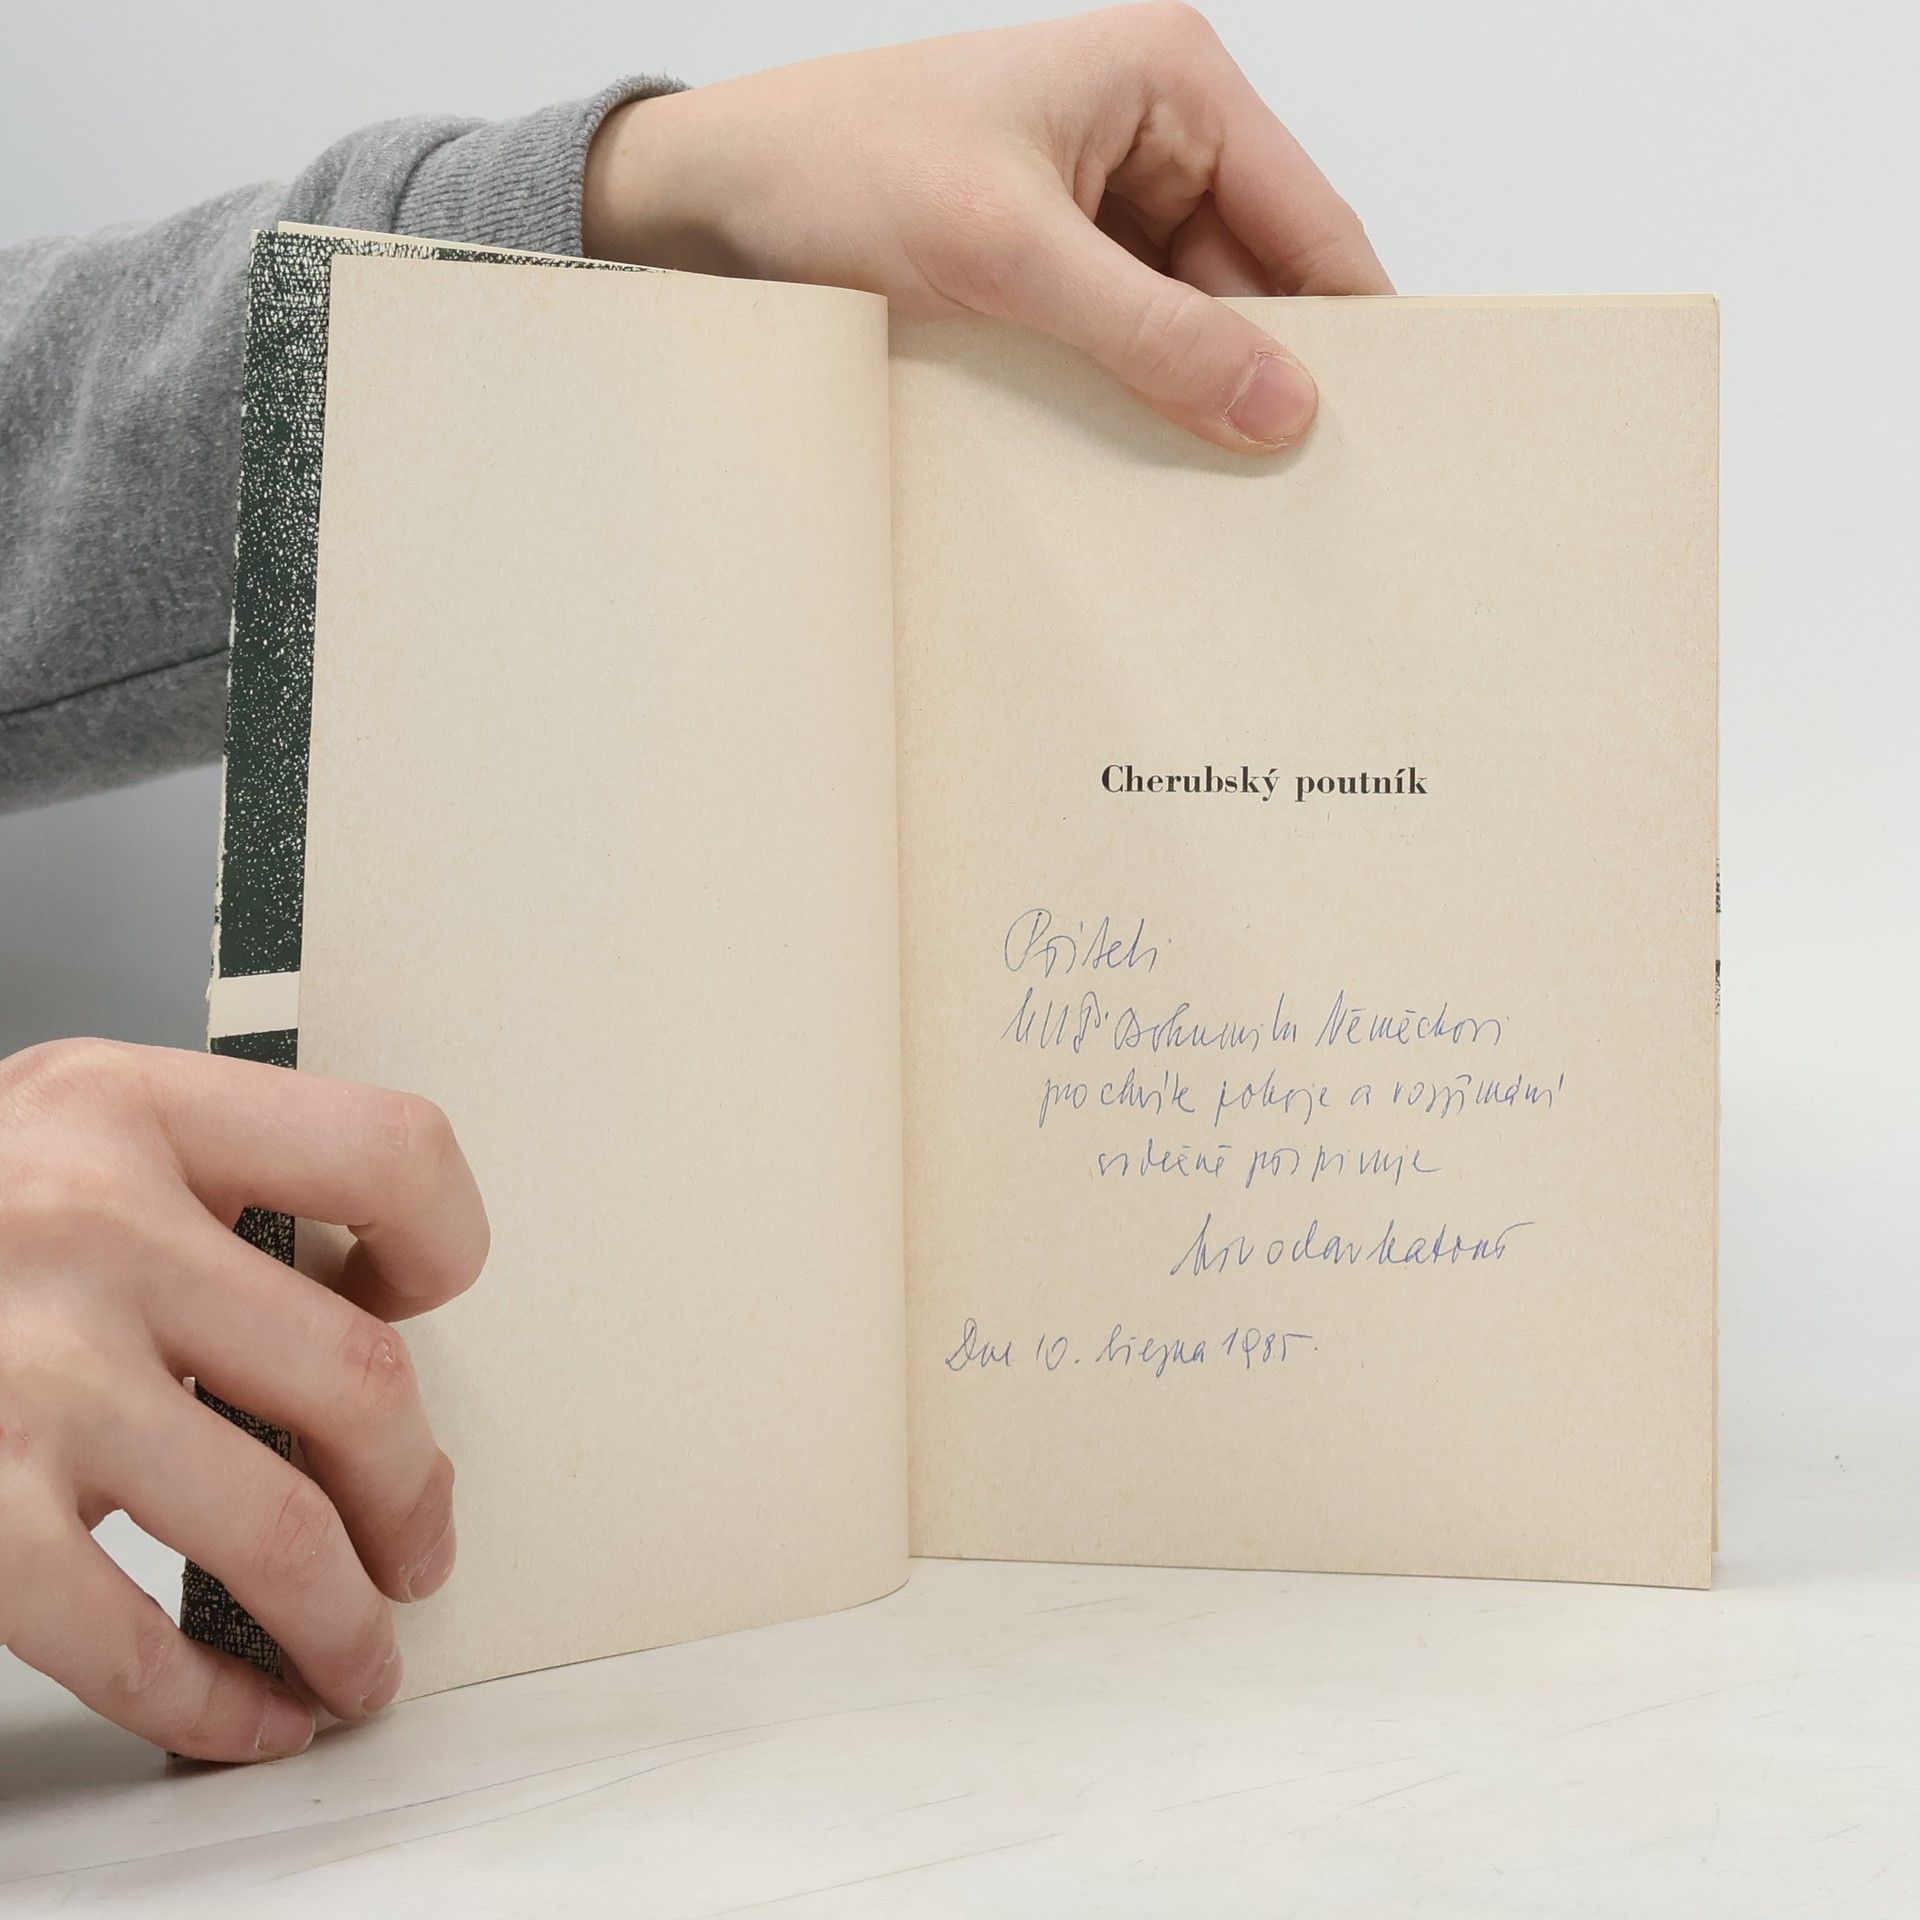 Cherubský poutník
Příteli
MUDr. Bohumilu Němečkovi
pro chvíle pokoje a rozjímání
srdečně připisuje
Miroslav Matouš
Dne 10. března 1985.